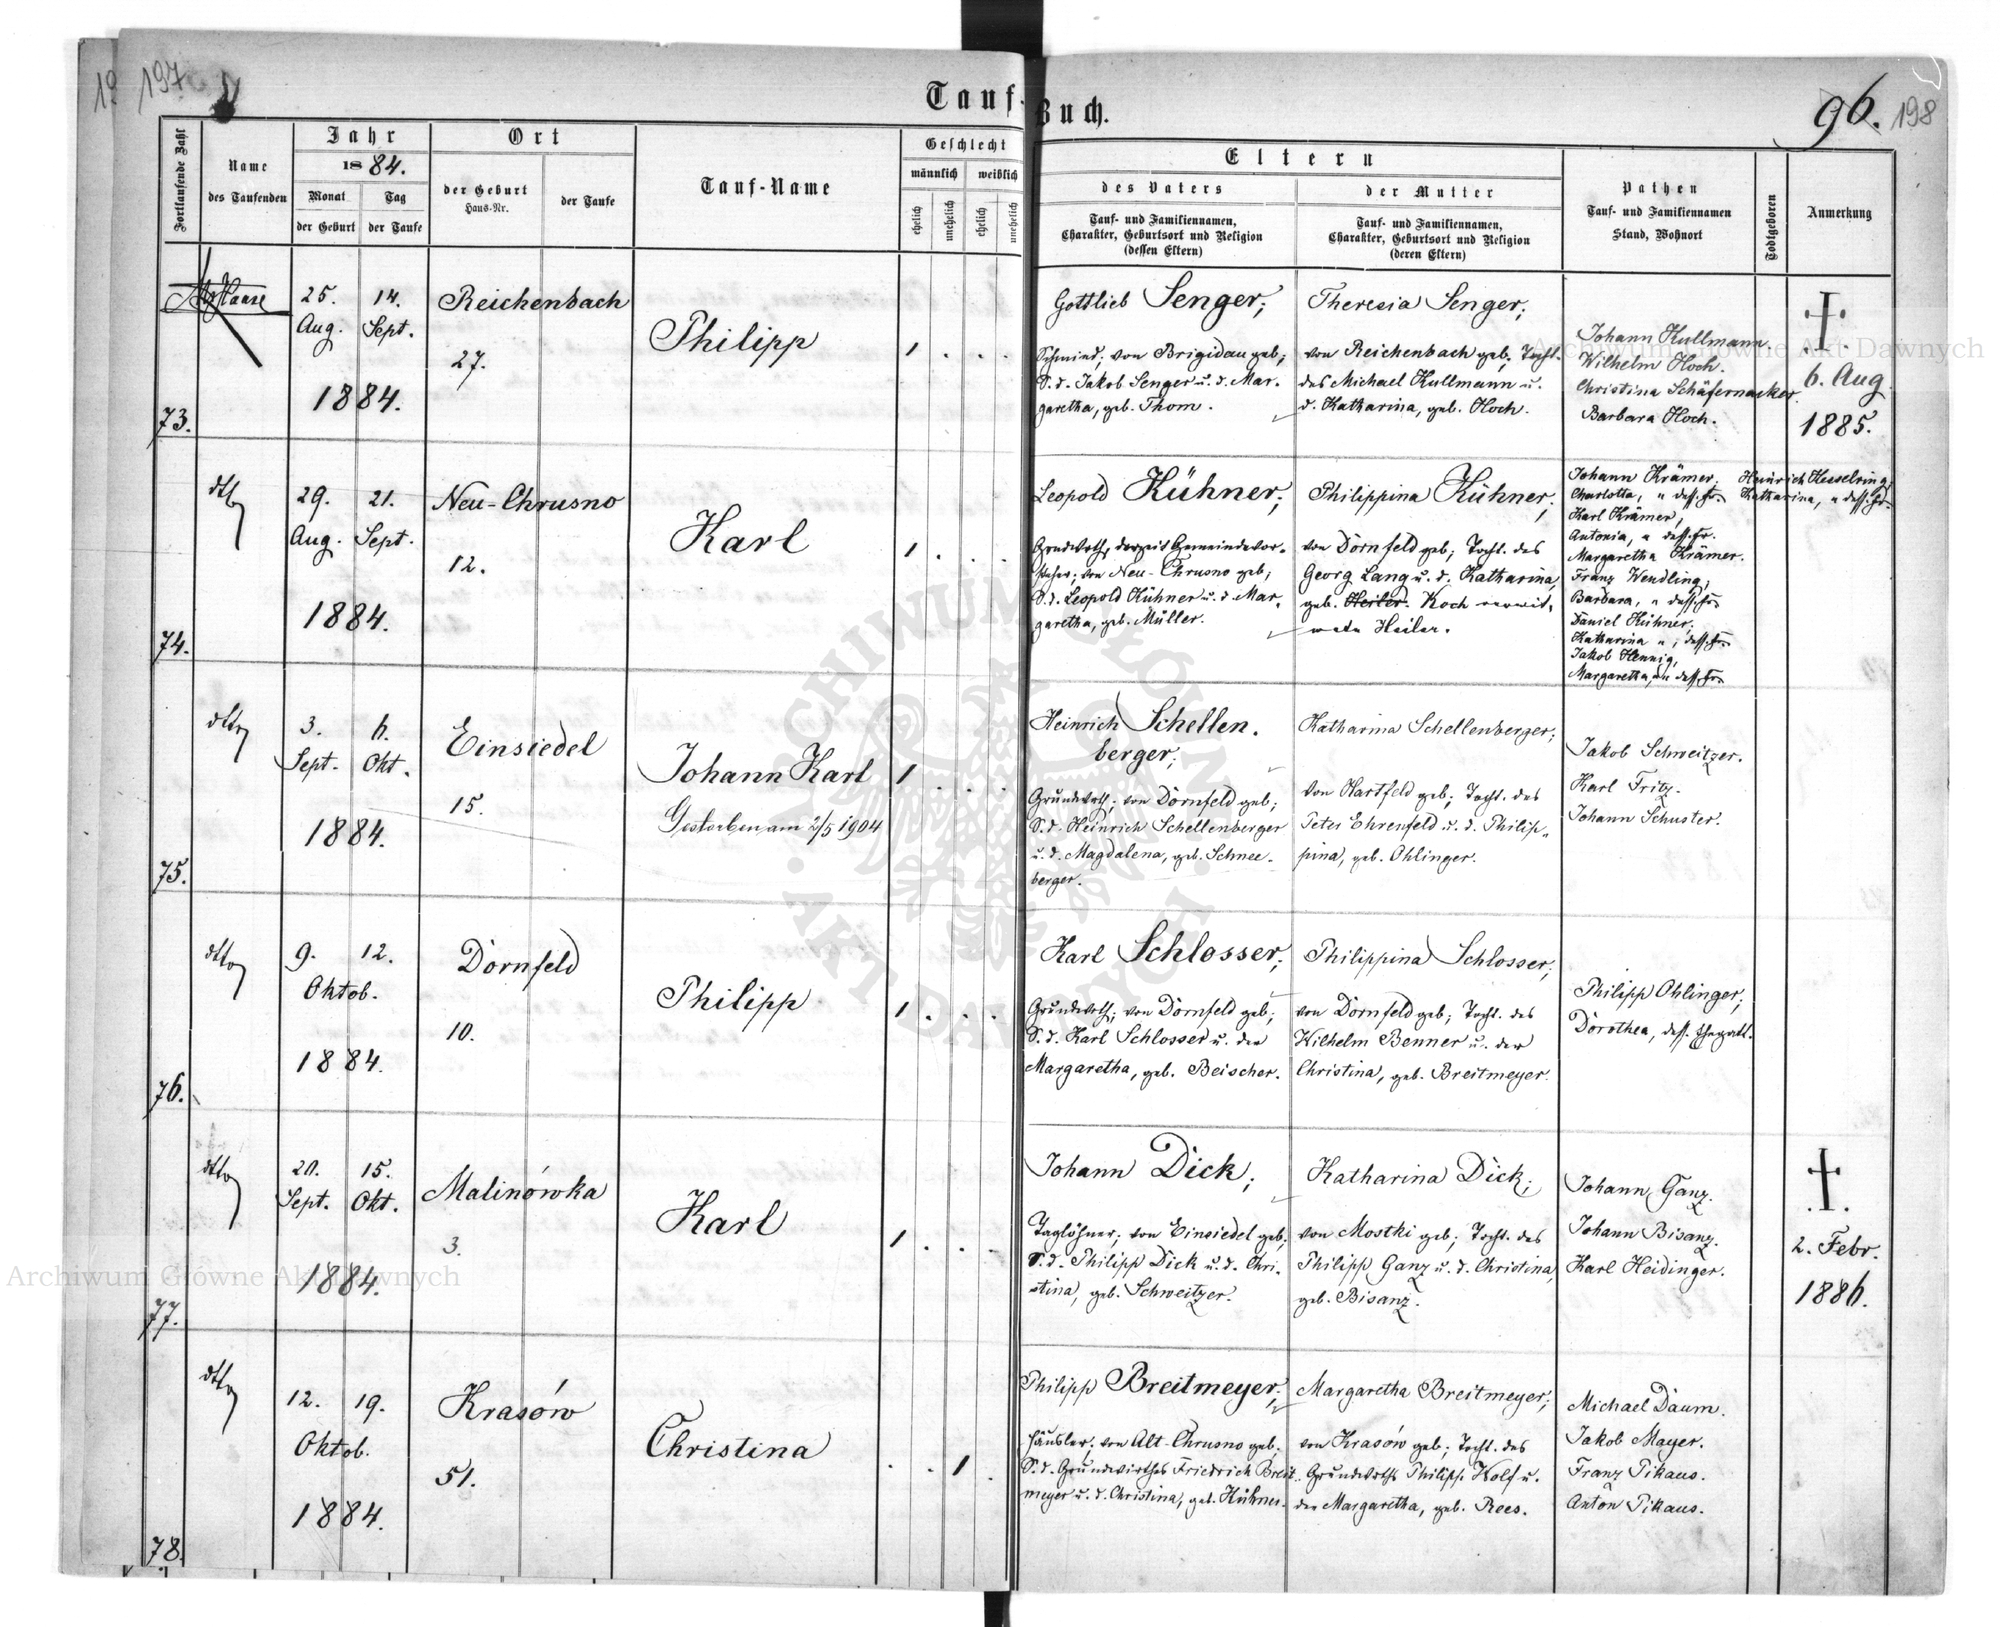 197
Tauf-Buch.
96.
198
Fortlaufende Zahl
Name
des Taufenden
Jahr
1884.
Monat
Tag
der Geburt
der Taufe
Ort
der Geburt
Haus-Nr.
der Taufe
Tauf-Name
Geschlecht
männlich
weiblich
ehelich
unehelich
ehelich
unehelich
Eltern
des Vaters
Tauf- und Familiennamen,
Charakter, Geburtsort und Religion
(dessen Eltern)
der Mutter
Tauf- und Familiennamen,
Charakter, Geburtsort und Religion
(deren Eltern)
Pathen
Tauf- und Familiennamen
Stand, Wohnort
Todtgeboren
Anmerkung
73.
25. 14.
Aug. Sept.
1884.
Reichenbach
27.
Philipp
1 . . .
Gottlieb Senger;
Schmied; von Brigidau geb;
S. d. Jakob Senger u. d. Mar-
garetha, geb. Thom.
Theresia Senger;
von Reichenbach geb; Tocht.
des Michael Kullmann u.
d. Katharina, geb. Hoch.
Johann Kullmann.
Wilhelm Hoch.
Christina Schäfernacker.
Barbara Hoch.
6. Aug
1885.
74.
dtto
29. 21.
Aug. Sept.
1884.
Neu-Chrusno
12.
Karl
1 . . .
Leopold Kühner;
Grundwrth, derzeit Gemeindevor-
steher; von Neu-Chrusno geb;
S. d. Leopold Kühner u. d. Mar-
garetha, geb. Müller.
Philippina Kühner;
von Dornfeld geb; Tocht. des
Georg Lang u. d. Katharina,
geb. Heiler. Koch verwit-
wete Heiler.
Johann Krämer.
Charlotta, " dess. Fr.
Karl Krämer,
Antonia, " dess. Fr.
Margaretha Krämer.
Franz Wendling;
Barbara, " dess. Fr.
Daniel Kühner;
Katharina "; dess. Fr.
Jakob Hennig,
Margaretha, " dess. Fr.
Heinrich Hesselring;
Katharina, " dess. Fr.
75.
dtto
3. 6.
Sept. Okt.
1884.
Einsiedel
15.
Johann Karl
Gestorben am 2/5 1904
1 . . .
Heinrich Schellen.
berger;
Grundwrth; von Dornfeld geb;
S. d. Heinrich Schellenberger
u. d. Magdalena, geb. Schnee-
berger.
Katharina Schellenberger;
von Hartfeld geb; Tocht. des
Peter Ehrenfeld u. d. Philip-
pina, geb. Ohlinger.
Jakob Schweitzer.
Karl Fritz.
Johann Schuster.
76.
dtto
9. 12.
Oktob.
1884.
Dornfeld
10.
Philipp
1 . . .
Karl Schlosser;
Grundwrth; von Dornfeld geb;
S. d. Karl Schlosser u. der
Margaretha, geb. Beischer.
Philippina Schlosser;
von Dornfeld geb; Tocht. des
Wilhelm Benner u. der
Christina, geb. Breitmeyer.
Philipp Ohlinger;
Dorothea, dess. Ehegatt.
77.
dtto
20. 15.
Sept. Okt.
1884.
Malinówka
3.
Karl
1 . . .
Johann Dick;
Taglöhner; von Einsiedel geb;
S. d. Philipp Dick u. d. Chri-
stina, geb. Schweitzer.
Katharina Dick;
von Mostki geb; Tocht. des
Philipp Ganz u. d. Christina,
geb. Bisanz.
Johann Ganz.
Johann Bisanz.
Karl Heidinger.
2. Febr.
1886.
78.
dtto
12. 19.
Oktob.
1884.
Krasów
51.
Christina
. . 1 .
Philipp Breitmeyer;
Häusler; von Alt-Chrusno geb.
S. d. Grundwirthes Friedrich Breit-
meyer u. d. Christina, geb. Kühner.
Margaretha Breitmeyer;
von Krasów geb; Tocht. des
Grundwrths Philipp Wolf u.
der Margaretha, geb. Rees.
Michael Daum.
Jakob Mayer.
Franz Pikaus.
Anton Pikaus.
Archiwum Główne Akt Dawnych
Archiwum Główne Akt Dawnych
ARCHIWUM GŁÓWNE
AKT DAWNYCH